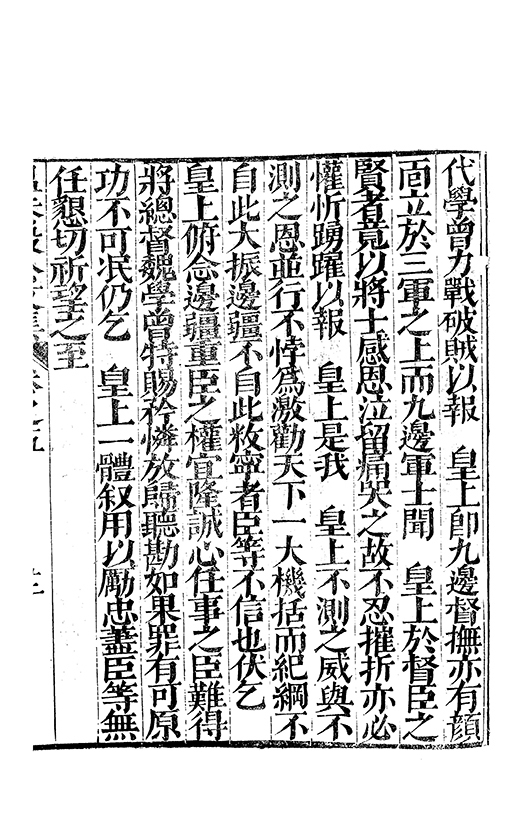 代學曾力戰破賊以報　皇上卽九邊督撫亦有顔
面立於三軍之上而九邊軍士聞　皇上於督臣之
賢者竟以將士感恩泣留痛哭之故不忍摧折亦必
懽忻踴躍以報　皇上是我　皇上不測之威與不
測之恩並行不悖爲激勸天下一大機括而紀綱不
自此大振邊疆不自此敉寧者臣等不信也伏乞
皇上俯念邊疆重臣之權宜隆誠心任事之臣難得
將總督魏學曾特賜矜憐放歸聽勘如果罪有可原
功不可泯仍乞　皇上一體叙用以勵忠藎臣等無
任懇切祈望之至
卷之五